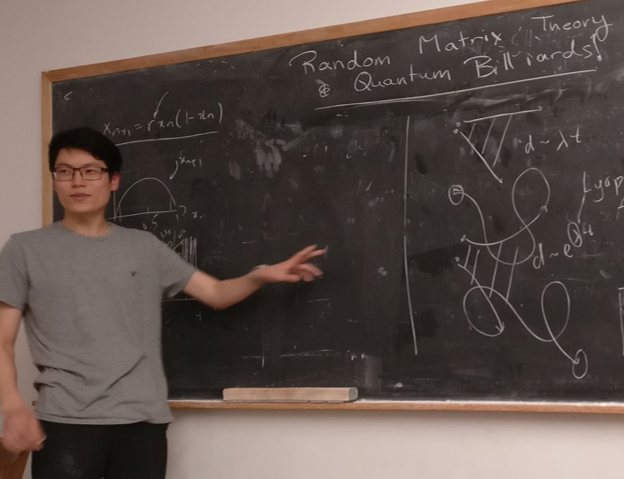 Random Matrix Theory
& Quantum Billiards!
c
Xn+1 = rxn(1-xn)
xn+1
x
d ~ λt
Lyap
d ~ e